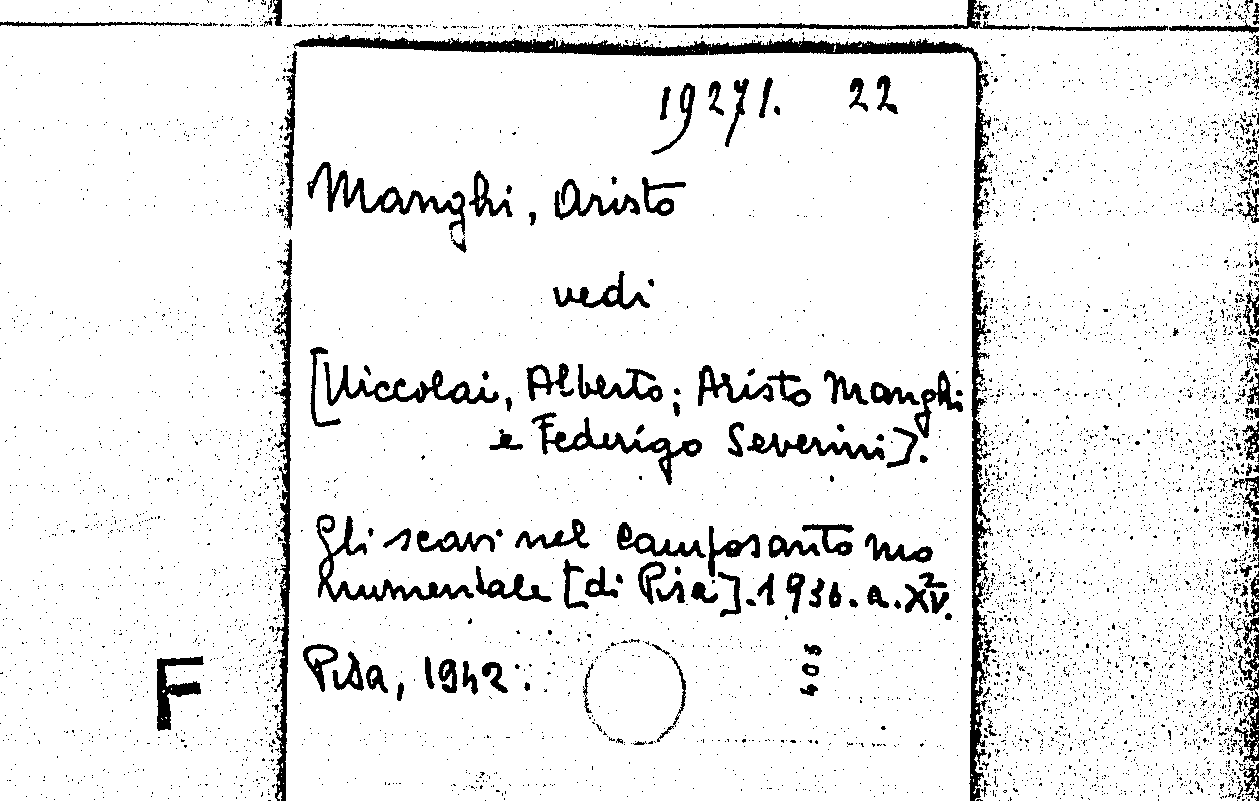 19271. 22
Manghi, Aristo
vedi
[Niccolai, Alberto; Aristo Manghi
e Federigo Severini].
Gli scavi nel Camposanto mo
numentale [di Pisa]. 1936. a. XV.
Pisa, 1942.
403
F